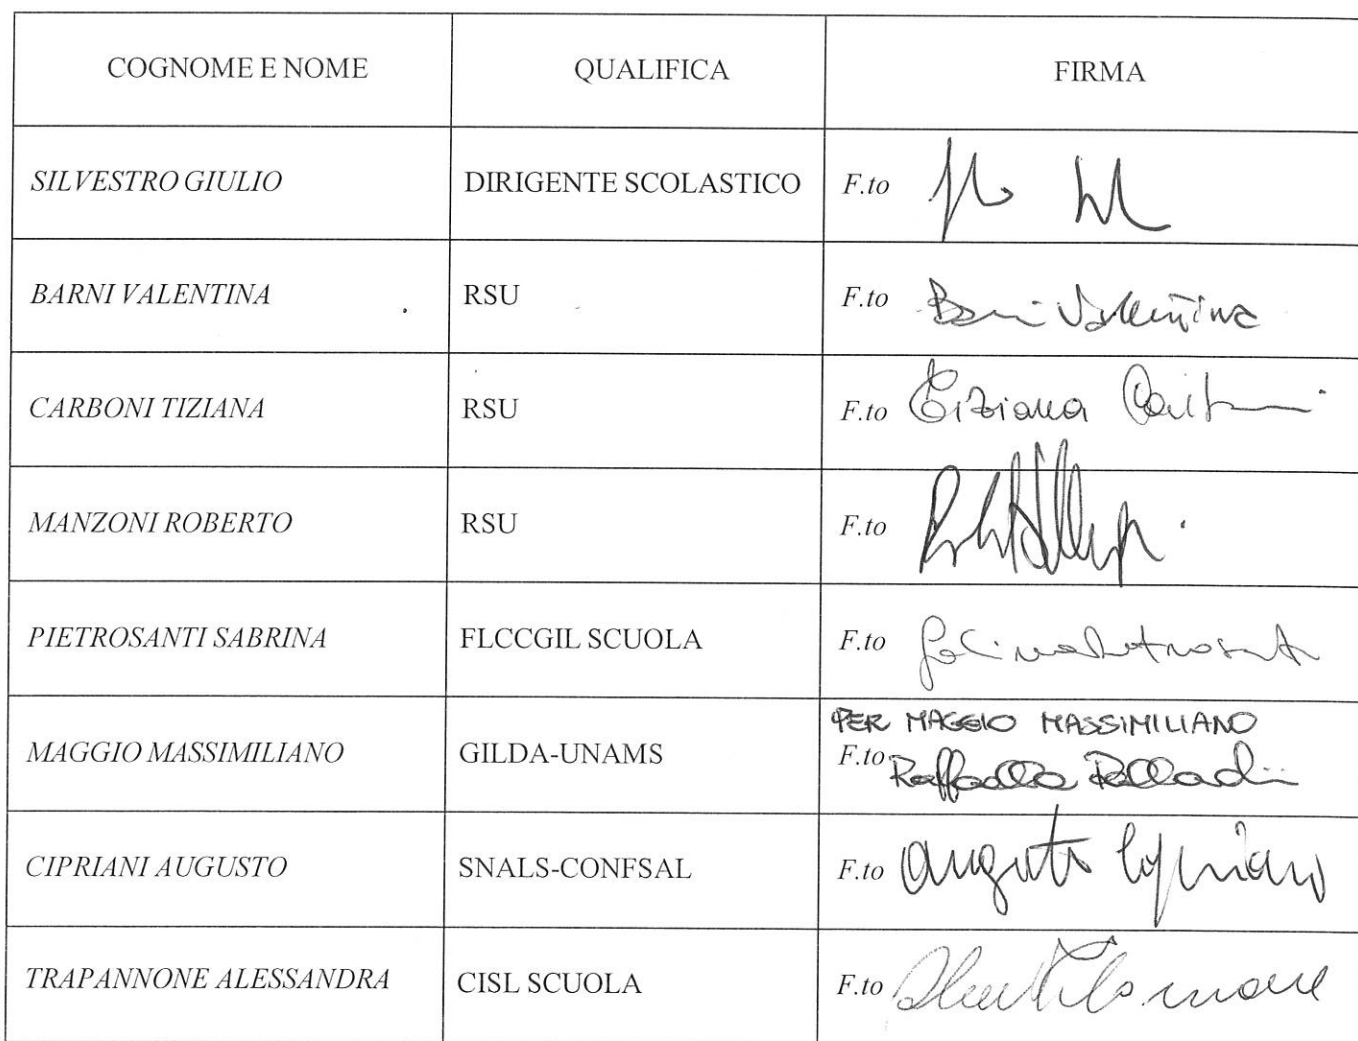 COGNOME E NOME QUALIFICA FIRMA
SILVESTRO GIULIO DIRIGENTE SCOLASTICO F.to
BARNI VALENTINA RSU F.to Barni Valentina
CARBONI TIZIANA RSU F.to Tiziana Carboni
MANZONI ROBERTO RSU F.to
PIETROSANTI SABRINA FLCCGIL SCUOLA F.to Sabrina Pietrosanti
PER MAGGIO MASSIMILIANO
MAGGIO MASSIMILIANO GILDA-UNAMS F.to Raffaella Palladini
CIPRIANI AUGUSTO SNALS-CONFSAL F.to Augusto Cipriani
TRAPANNONE ALESSANDRA CISL SCUOLA F.to